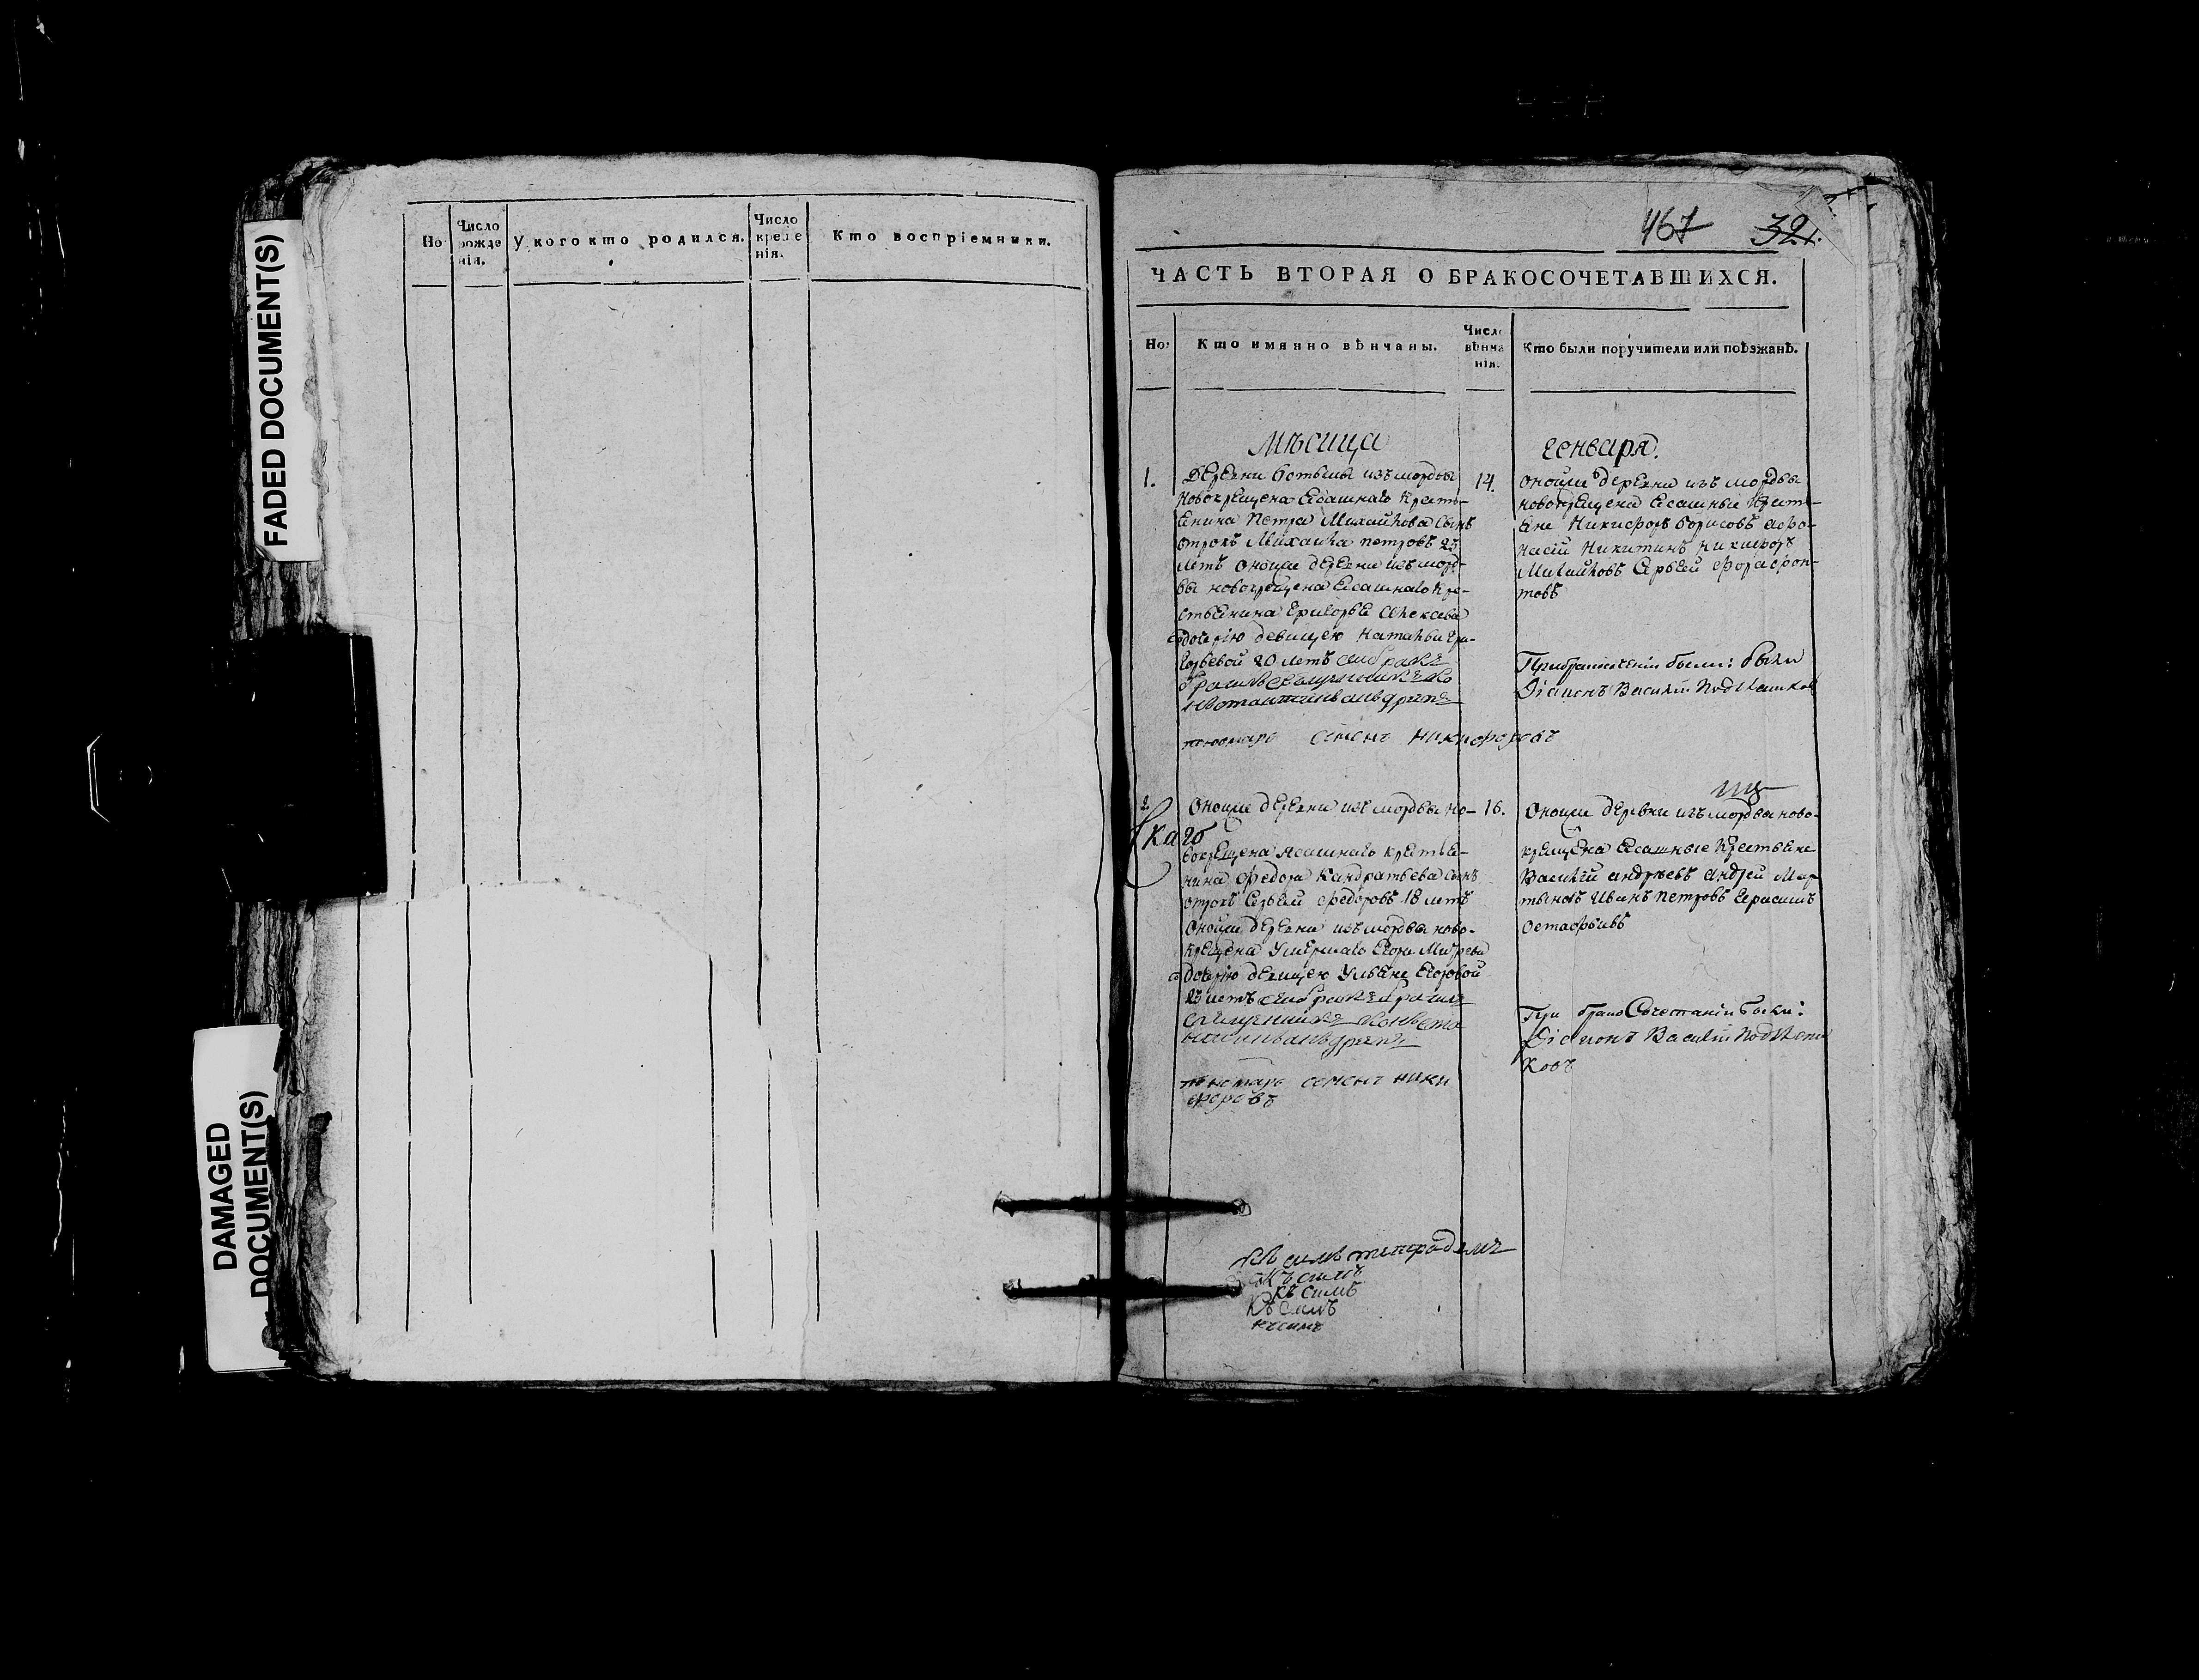 FADED DOCUMENT(S)
DAMAGED
DOCUMENT(S)
Но
Число рожде нія.
У кого кто родился.
Число креще нія.
Кто воспріемники.
467 321.
ЧАСТЬ ВТОРАЯ О БРАКОСОЧЕТАВШИХСЯ.
Но
Кто имянно вѣнчаны.
Число вѣнча нія.
Кто были поручители или поѣзжанѣ.
Мѣсяца
генваря.
1.
деревни ботьмы изъ мордвы
новокрещена ясашнаго кресть-
енина Петра Михайлова сынъ
отрокъ Михайла петровъ 23
летъ оной же деревни изъ морд-
вы новокрещена ясашнаго кре-
стьенина Григорья Алексева
з дочерью девицею Натальи Гри-
горьевой 20 летъ
пономарь семенъ никифоровъ
14.
оной же деревни изъ мордвы
новокрещены ясашные крест-
ене Никифоръ борисовъ афо-
насій Никитинъ никифоръ
Михайловъ Сергей Фарафон-
товъ
При бракосочетаніи были: были
Діаконъ Василій
2.
оной же деревни изъ мордвы но-
каго
вокрещена ясашнаго крестье-
нина федора Кандратьева сынъ
отрокъ Сергей федоровъ 18 летъ
оной же деревни изъ мордвы ново-
крещена умершаго Егора Митрева
з дочерью девицею Ульяне Егоровой
23 летъ
пономарь семенъ ники
форовъ
16.
оной же деревни изъ мордвы ново-
крещена ясашные крестьене
Василій андреевъ андрей Мар
тыновъ Иванъ петровъ Герасимъ
остафьивъ
При бракосочетаніи были:
Діаконъ Василій
ковъ
къ симъ тетрадемъ
къ симъ
къ симъ
къ симъ
къ симъ